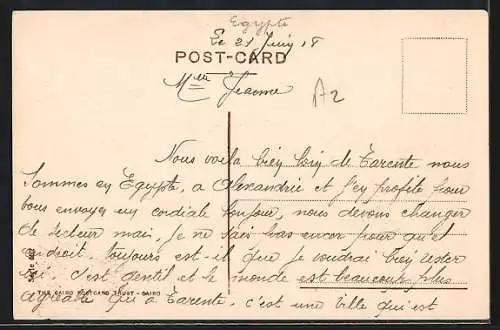 Egypte
Le 21 Juin 18
POST-CARD
Mlle Jeanne
A2
Nous voila bien loin de Tarente nous
sommes en Egypte, a Alexandrie et j'en profite pour
vous envoyer un cordiale bonjour, nous devons changer
de secteur mais je ne sais pas encor pour quel
endroit, toujours est-il que je voudrai bien rester
ici s'est gentil et le monde est beaucoup plus
agréable qui a Tarente, c'est une ville qui est
Serie
THE CAIRO POSTCARD TRUST - CAIRO